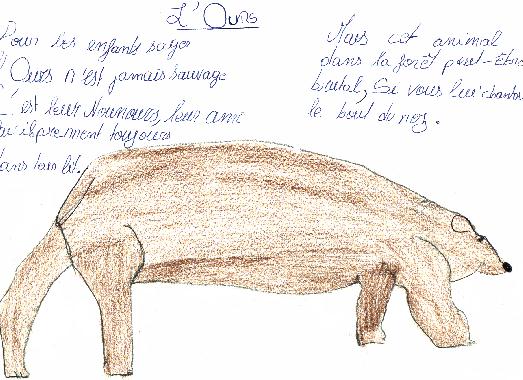 L'Ours
Pour les enfants sage
l'Ours n'est jamais sauvage
C'est leur Nounours, leur ami
qu'il prennent toujours
dans leur lit.
Mais cet animal
dans la forêt peut-être
brutal, Si vous lui chantou
le bout du nez.